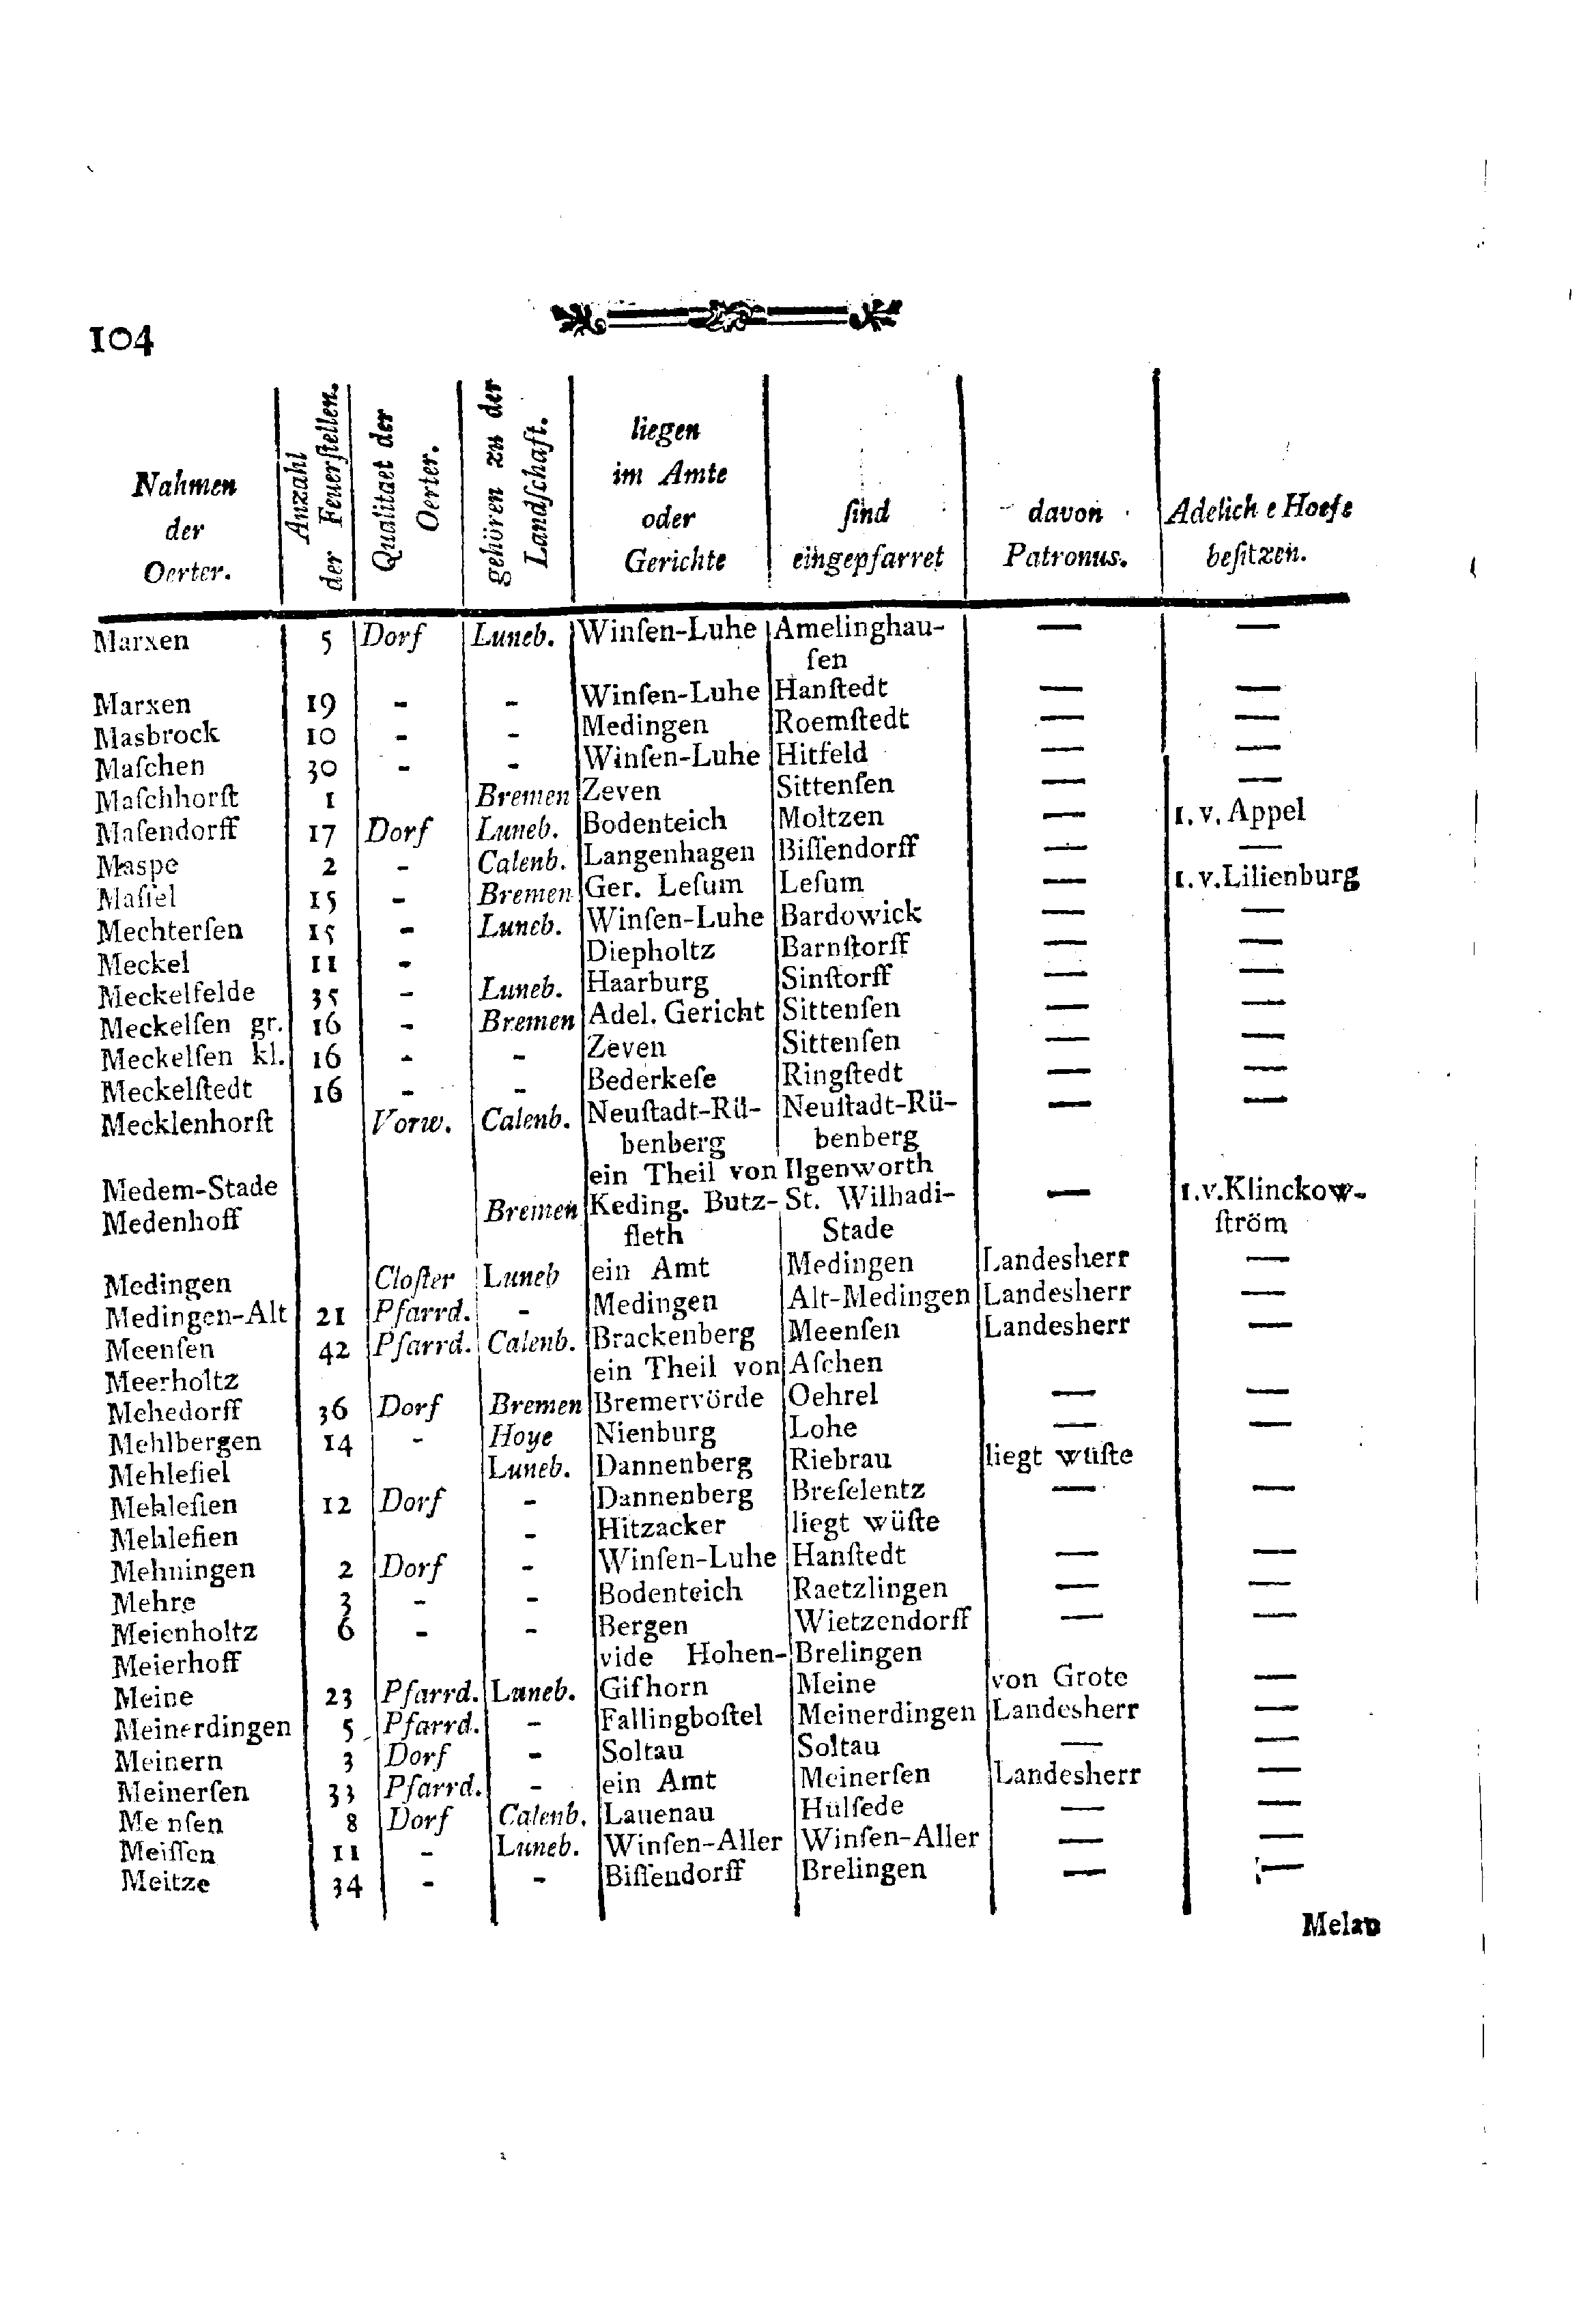 104
Nahmen der Oerter. | Anzahl der Feuerſtellen. | Qualitaet der Oerter. | gehören zu der Landſchaft. | liegen im Amte oder Gerichte | ſind eingepfarret | davon Patronus. | Adeliche Hoefe beſitzen.
Marxen 5 Dorf Luneb. Winſen-Luhe Amelinghau- — —
ſen
Marxen 19 - - Winſen-Luhe Hanſtedt — —
Masbrock 10 - - Medingen Roemſtedt — —
Maſchen 30 - - Winſen-Luhe Hitfeld — —
Maſchhorſt 1 Bremen Zeven Sittenſen — —
Maſendorff 17 Dorf Luneb. Bodenteich Moltzen — 1. v. Appel
Maspe 2 - Calenb. Langenhagen Biſſendorff — —
Maſſel 15 - Bremen Ger. Leſum Leſum — 1. v. Lilienburg
Mechterſen 15 - Luneb. Winſen-Luhe Bardowick — —
Meckel 11 - Diepholtz Barnſtorff — —
Meckelfelde 35 - Luneb. Haarburg Sinſtorff — —
Meckelſen gr. 16 - Bremen Adel. Gericht Sittenſen — —
Meckelſen kl. 16 - - Zeven Sittenſen — —
Meckelſtedt 16 - - Bederkeſe Ringſtedt — —
Mecklenhorſt Vorw. Calenb. Neuſtadt-Rü- Neuſtadt-Rü- — —
benberg benberg
Medem-Stade ein Theil von Ilgenworth
Medenhoff Bremen Keding. Butz- St. Wilhadi- — 1. v. Klinckow-
fleth Stade ſtröm
Medingen Cloſter Luneb ein Amt Medingen Landesherr —
Medingen-Alt 21 Pfarrd. - Medingen Alt-Medingen Landesherr —
Meenſen 42 Pfarrd. Calenb. Brackenberg Meenſen Landesherr —
Meerholtz ein Theil von Aſchen
Mehedorff 36 Dorf Bremen Bremervörde Oehrel — —
Mehlbergen 14 - Hoye Nienburg Lohe — —
Mehleſiel Luneb. Dannenberg Riebrau liegt wüſte
Mehleſien 12 Dorf - Dannenberg Breſelentz — —
Mehleſien - Hitzacker liegt wüſte
Mehningen 2 Dorf - Winſen-Luhe Hanſtedt — —
Mehre 3 - - Bodenteich Raetzlingen — —
Meienholtz 6 - - Bergen Wietzendorff — —
Meierhoff vide Hohen- Brelingen
Meine 23 Pfarrd. Luneb. Gifhorn Meine von Grote —
Meinerdingen 5 Pfarrd. - Fallingboſtel Meinerdingen Landesherr —
Meinern 3 Dorf - Soltau Soltau — —
Meinerſen 33 Pfarrd. - ein Amt Meinerſen Landesherr —
Me nſen 8 Dorf Calenb. Lauenau Hülſede — —
Meiſſen 11 - Luneb. Winſen-Aller Winſen-Aller — —
Meitze 34 - - Biſſendorff Brelingen — —
Melau